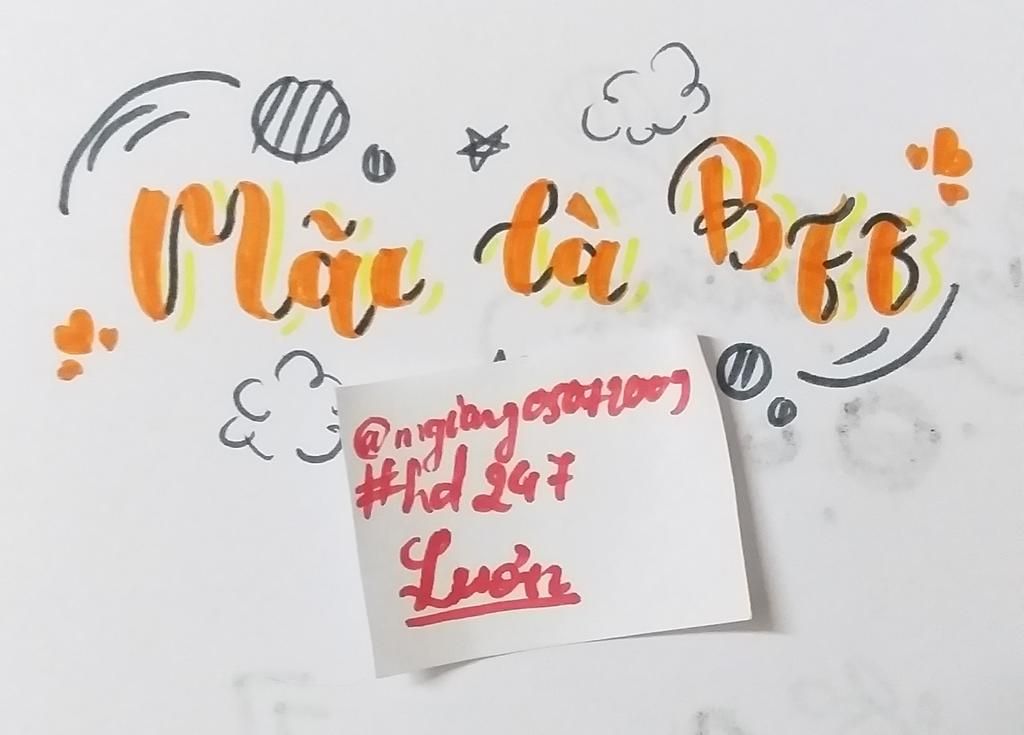 Mãi là Bff
@ngiang05072009
#hd247
Lươn